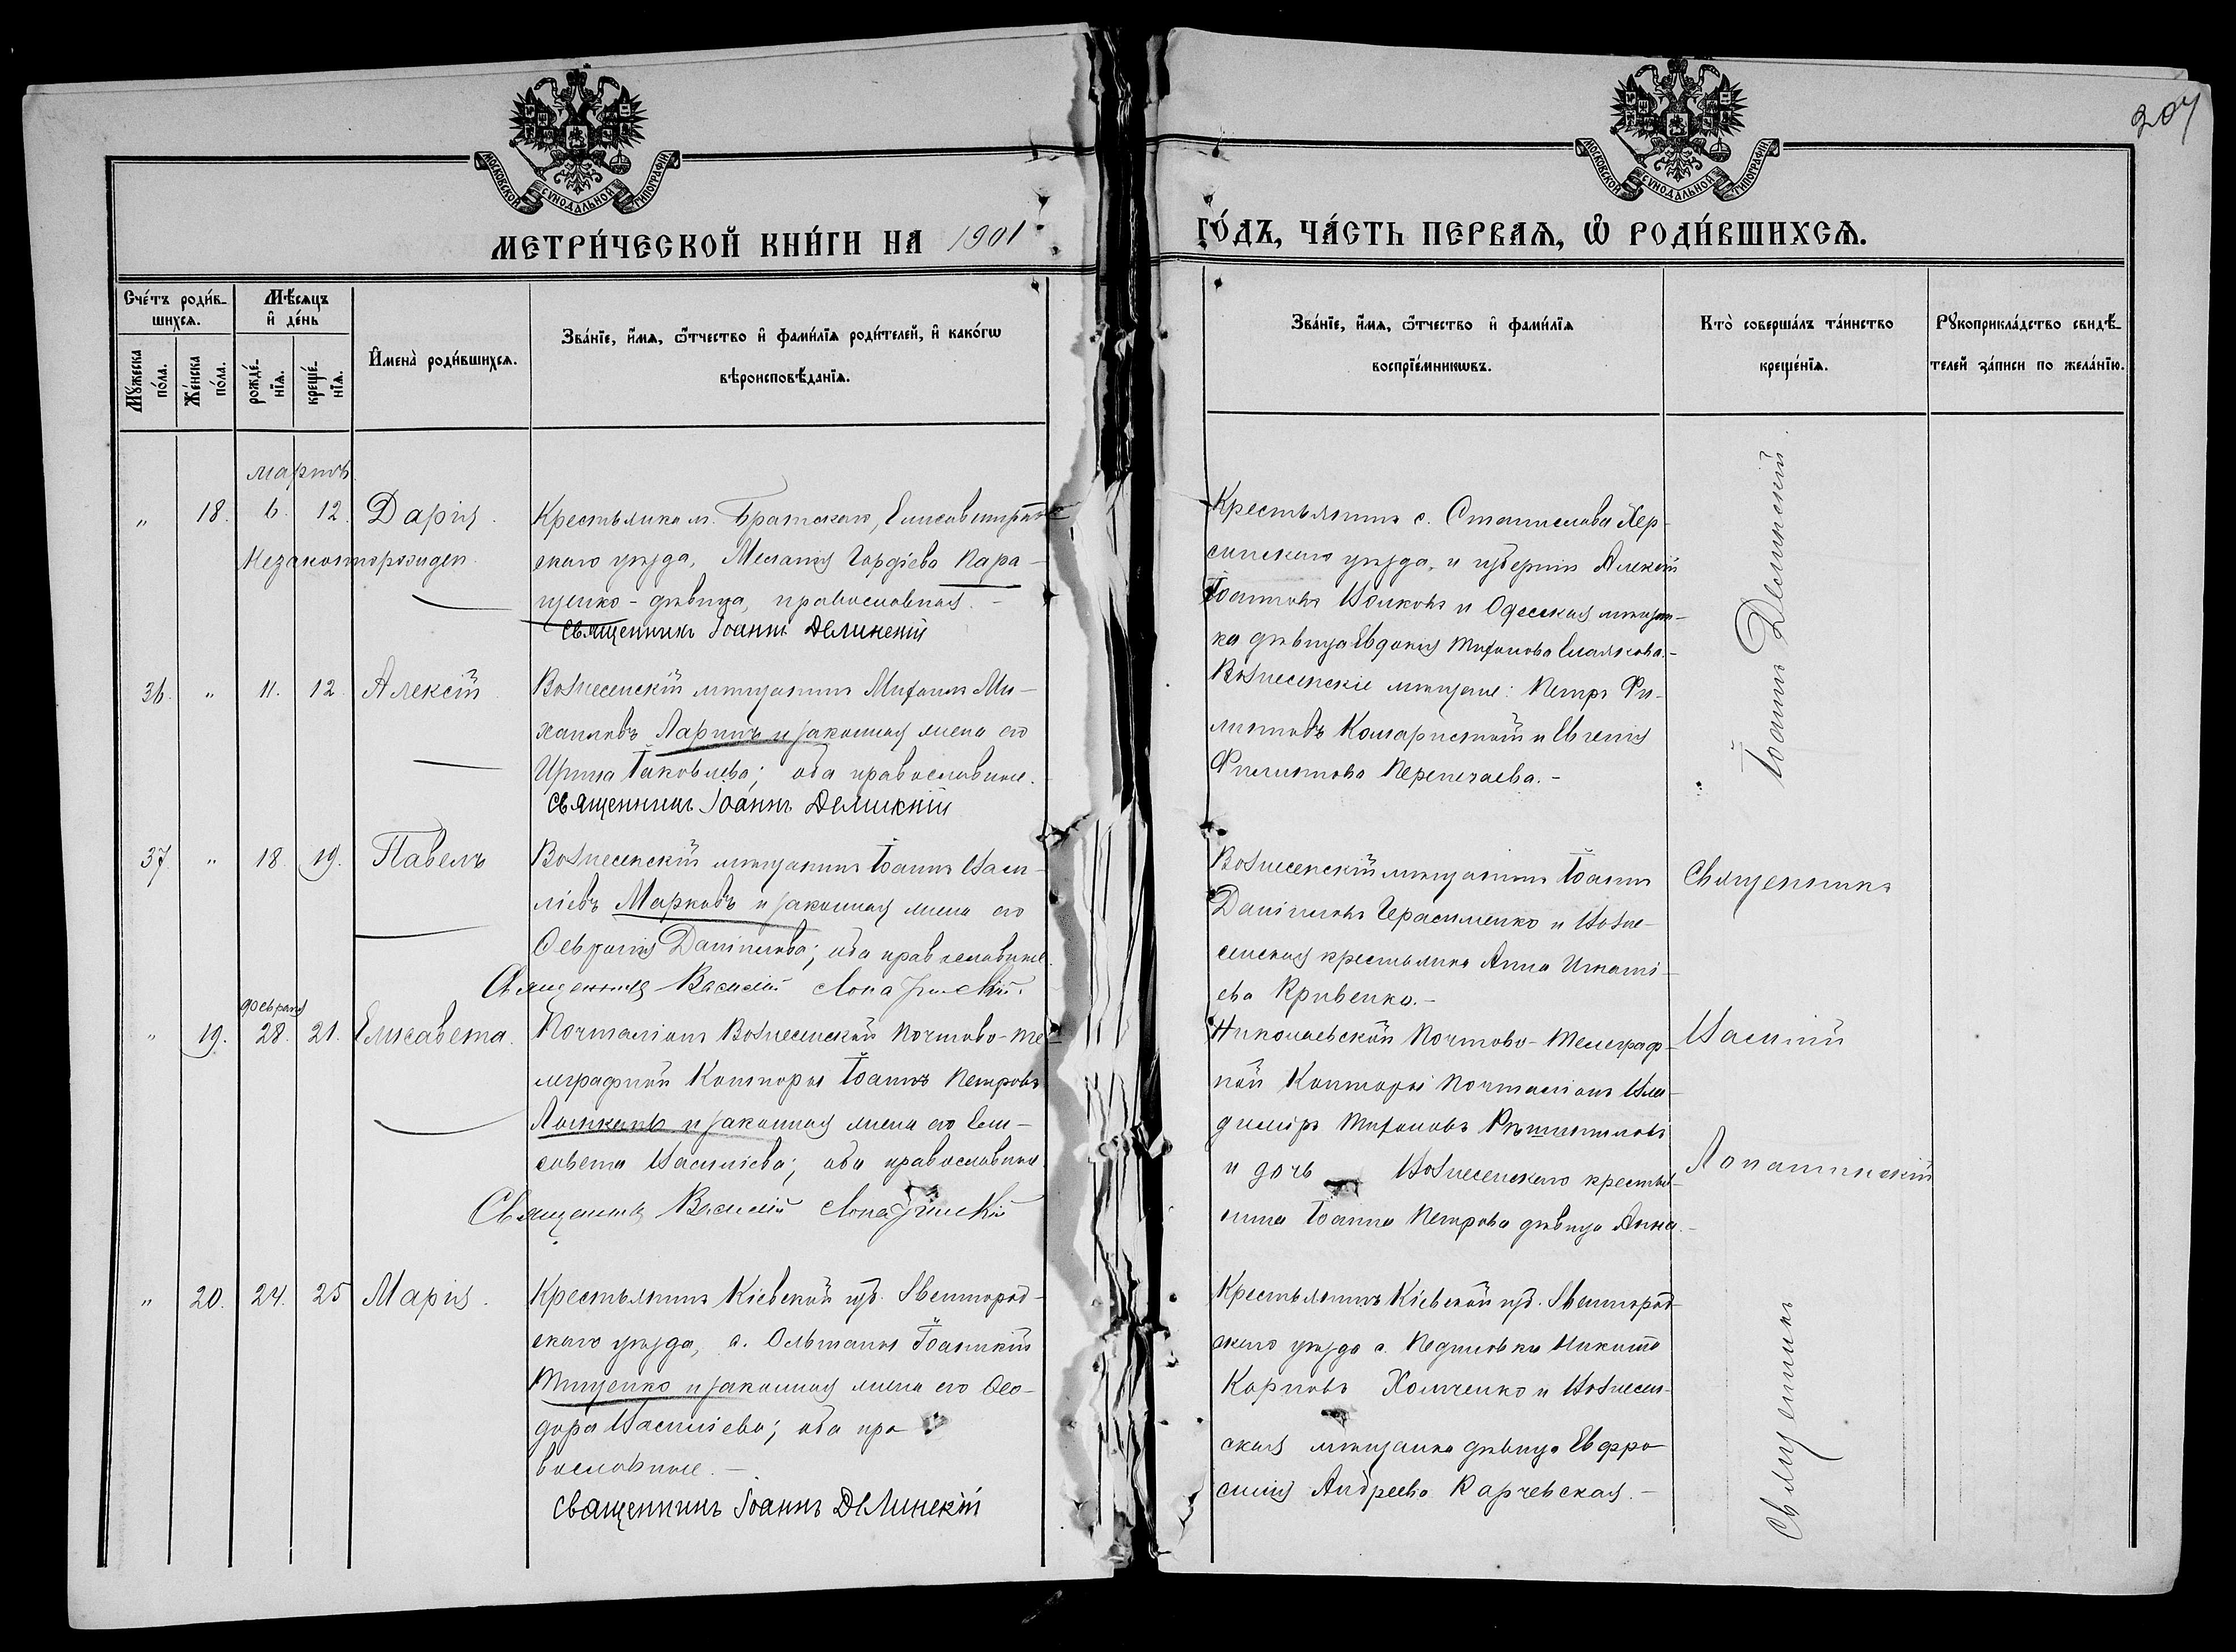 207
МОСКОВСКОЙ СѴНОДАЛЬНОЙ ТИПОГРАФІИ
МОСКОВСКОЙ СѴНОДАЛЬНОЙ ТИПОГРАФІИ
МЕТРИ́ЧЕСКОЙ КНИ́ГИ НА 1901 ГО́ДЪ, ЧА́СТЬ ПЕРВАѦ, Ѡ҆ РОДИ́ВШИХСѦ.
Сче́тъ роди́в-
шихсѧ.
Мꙋ́жеска по́ла.
Же́нска по́ла.
Мѣ́сѧцъ
и҆ де́нь
рожде́нїѧ.
креще́нїѧ.
И҆мена̀ роди́вшихсѧ.
Зва́нїе, и҆́мѧ, ѻ҆́тчество и҆ фами́лїѧ роди́телей, и҆ како́гѡ
вѣроисповѣ́данїѧ.
Зва́нїе, и҆́мѧ, ѻ҆́тчество и҆ фами́лїѧ
воспрїе́мникѡвъ.
Кто̀ соверша́лъ та́инство
креще́нїѧ.
Рꙋкоприкла́дство свидѣ́-
телей за́писи по жела́нїю.
мартъ
" 18. 6. 12. Дарія.
Незаконнорожден.
Крестьянка м. Братскаго, Елисаветград-
скаго уѣзда, Меланія Гордіева Кара-
щенко - дѣвица, православная. -
Священникъ Іоаннъ Делинскій
Крестьянинъ с. Станислава Хер-
сонскаго уѣзда, и губерніи Алексій
Іоанновъ Волковъ и Одесская мѣщан-
ка дѣвица Евдокія Тифонова
Іоаннъ Делинскій
36. " 11. 12. Алексій
Вознесенскій мѣщанинъ Мифонъ Ми-
хаиловъ Ларинъ и законная жена его
Ирина Іаковлева; оба православные.
Священникъ Іоаннъ Делинскій
Вознесенскіе мѣщане: Петръ Фи-
липповъ Комариской и Евгенія
Филиппова Перепечаева. -
37. " 18. 19. Павелъ
Вознесенскій мѣщанинъ Іоаннъ Васи-
ліевъ Марковъ и законная жена его
Ѳевронія Даніилова; оба православные.
Священникъ Василій Лопатинскій.
Вознесенскій мѣщанинъ Іоаннъ
Данииловъ Герасименко и Возне-
сенская крестьянка Анна Игнаті-
ева Кривенко. -
Священникъ
Василій
Лопатинскій
февраля
" 19. 28. 21. Елисавета.
Почталіонъ Вознесенской Почтово-Те-
леграфной Конторы Іоаннъ Петровъ
Лошкинъ и законная жена его Ели-
савета Василіева; оба православные
Священникъ Василій Лопатинскій
Николаевской Почтово-Телеграф-
ной Конторы Почталіонъ Вла-
диміръ Тифоновъ Рѣшетниковъ
и дочь Вознесенскаго крестья-
нина Іоанна Петрова дѣвица Анна. -
" 20. 24. 25 Марія.
Крестьянинъ Кіевской губ. Звенигород-
скаго уѣзда, с. Ольшаны Іоанникій
Тищенко и законная жена его Ѳео-
дора Василіева; оба пра-
вославные. -
Священникъ Іоаннъ Делинскій
Крестьянинъ Кіевской губ. Звенигород-
скаго уѣзда с. Пединовки Никита
Карповъ Хомченко и Вознесен-
ская мѣщанка дѣвица Евфро-
синія Андреева Карчевская. -
Священникъ